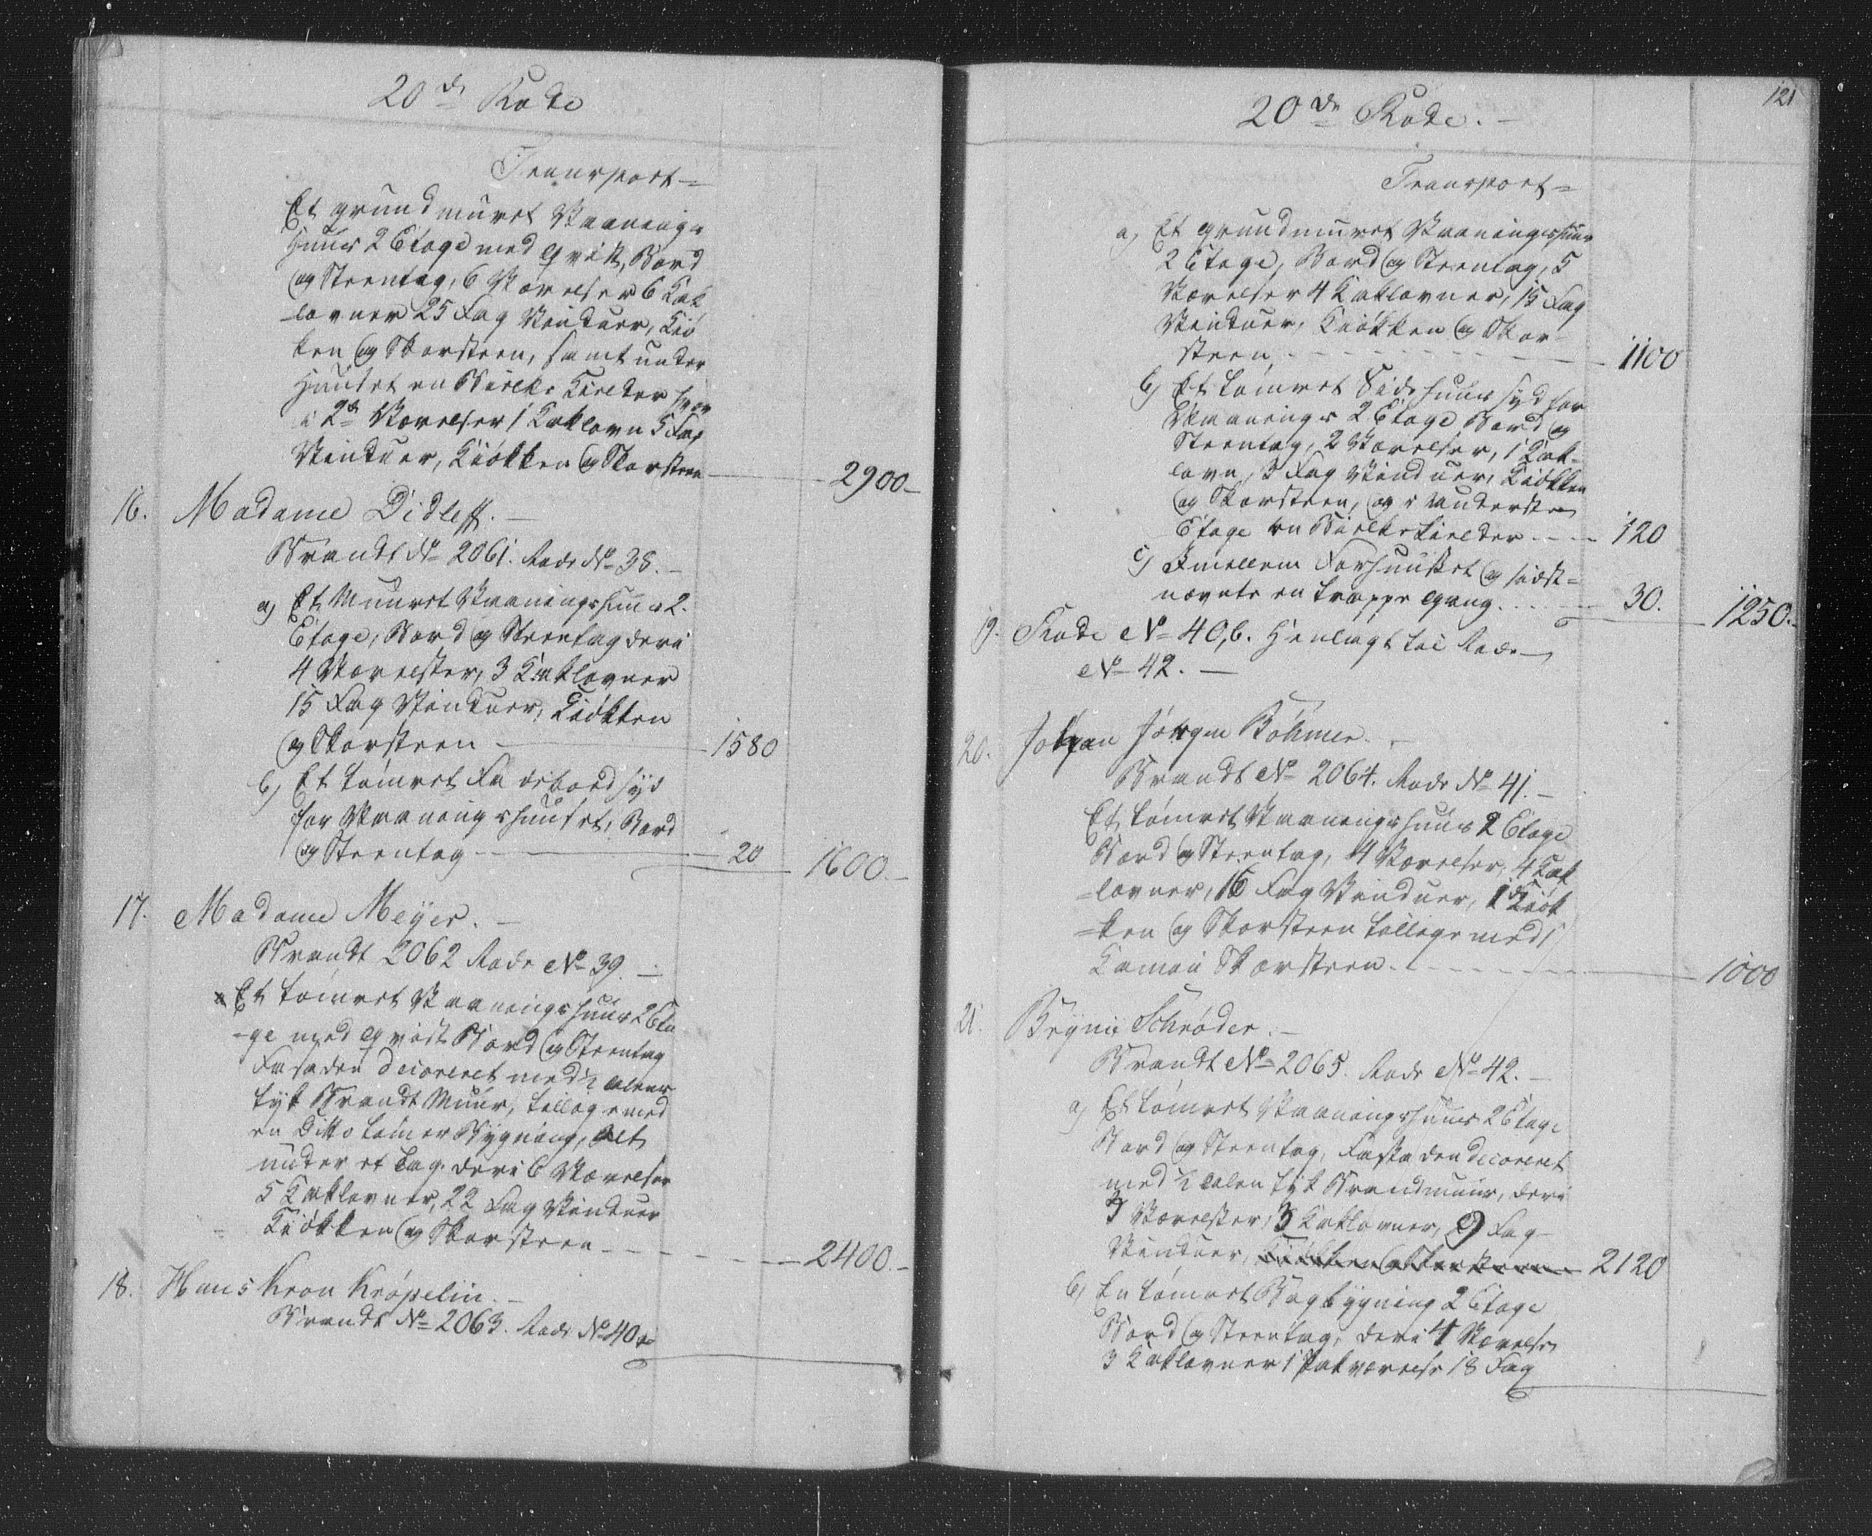 20de Rode
Transport =
Et grundmuret Vaanings
Huus 2 Etage med Qvist, Bord
og Steentag, 6 Værelser 6 Kak
-lovner 25 Fag Vinduer, Kiø
ken og Skorsteen, samt under
Huuset en Bielke Kielder
i 2de Værelser 1 Kaklovn 5 Fag
Vinduer, Kiøkken og Skorsteen — 2900 —
16. Madame Didleff. —
Brandt No 2061. Rode No 38. —
a) Et Muuret Vaaningshuus 2.
Etage, Bord og Steentag deri
4 Værelser, 3 Kaklovner
15 Fag Vinduer, Kiøkken
og Skorsteen — 1580
b) Et tømret Fadebord syd
for Vaaningshuuset, Bord
og Steentag — 20 1600. —
17. Madame Meyer. —
Brandt 2062 Rode No 39. —
Et tømret Vaaningshuus 2 Eta
-ge med Qvist Bord og Steentag
Fasaden decoreret med ½ alens
tyk Brandt Muur, tillige med
en Ditto tømer Bygning, alt
under et Tag. deri 6 Værelser
5 Kaklovner, 22 Fag Vinduer
Kiøkken og Skorsteen — 2400. —
18. Hans Kron Krøpelin. —
Brandt No 2063. Rode No 40 a
121
20de Rode. —
Transport =
a) Et grundmuret Vaaningshuus
2 Etage, Bord og Steentag, 5
Værelser 4 Kaklovner, 15 Fag
Vinduer, Kiøkken og Skor-
steen — 1100
b) Et tømret Sidehuus syd for
Vaanings 2 Etage Bord og
Steentag, 2 Værelser, 1 Kak-
lovn, 3 Fag Vinduer, Kiøkken
og Skorsteen, og i understen
Etage en Bielke Kielder — 120
c) Imellem Forhuuset og sidst =
nævnte en Trappe gang — 30. 1250. —
19. Rode No 40, b. Henlagt til Rode
No 42. —
20. Johan Jørgen Bøhmer. —
Brandt No 2064. Rode No 41. —
Et tømret Vaaningshuus 2 Etage
Bord og Steentag, 4 Værelser, 4 Kak
=lovner, 16 Fag Vinduer, 1 Kiøk
=ken og Skorsteen tillige med 1
Kamin Skorsteen. — 1000
21. Brynie Schrøder. —
Brandt No 2065. Rode No 42. —
a) Et tømret Vaaningshuus 2 Etage
Bord og Steentag, Fasaden decoreret
med ½ alen tyk Brandmuur, deri
7 Værelser, 3 Kaklovner, 9 Fag
Vinduer, Kiøkken og Skorsteen — 2120
b) En tømret Bagbygning 2 Etage
Bord og Steentag, deri 4 Værelser
3 Kaklovner 1 Pakværelse 18 Fag